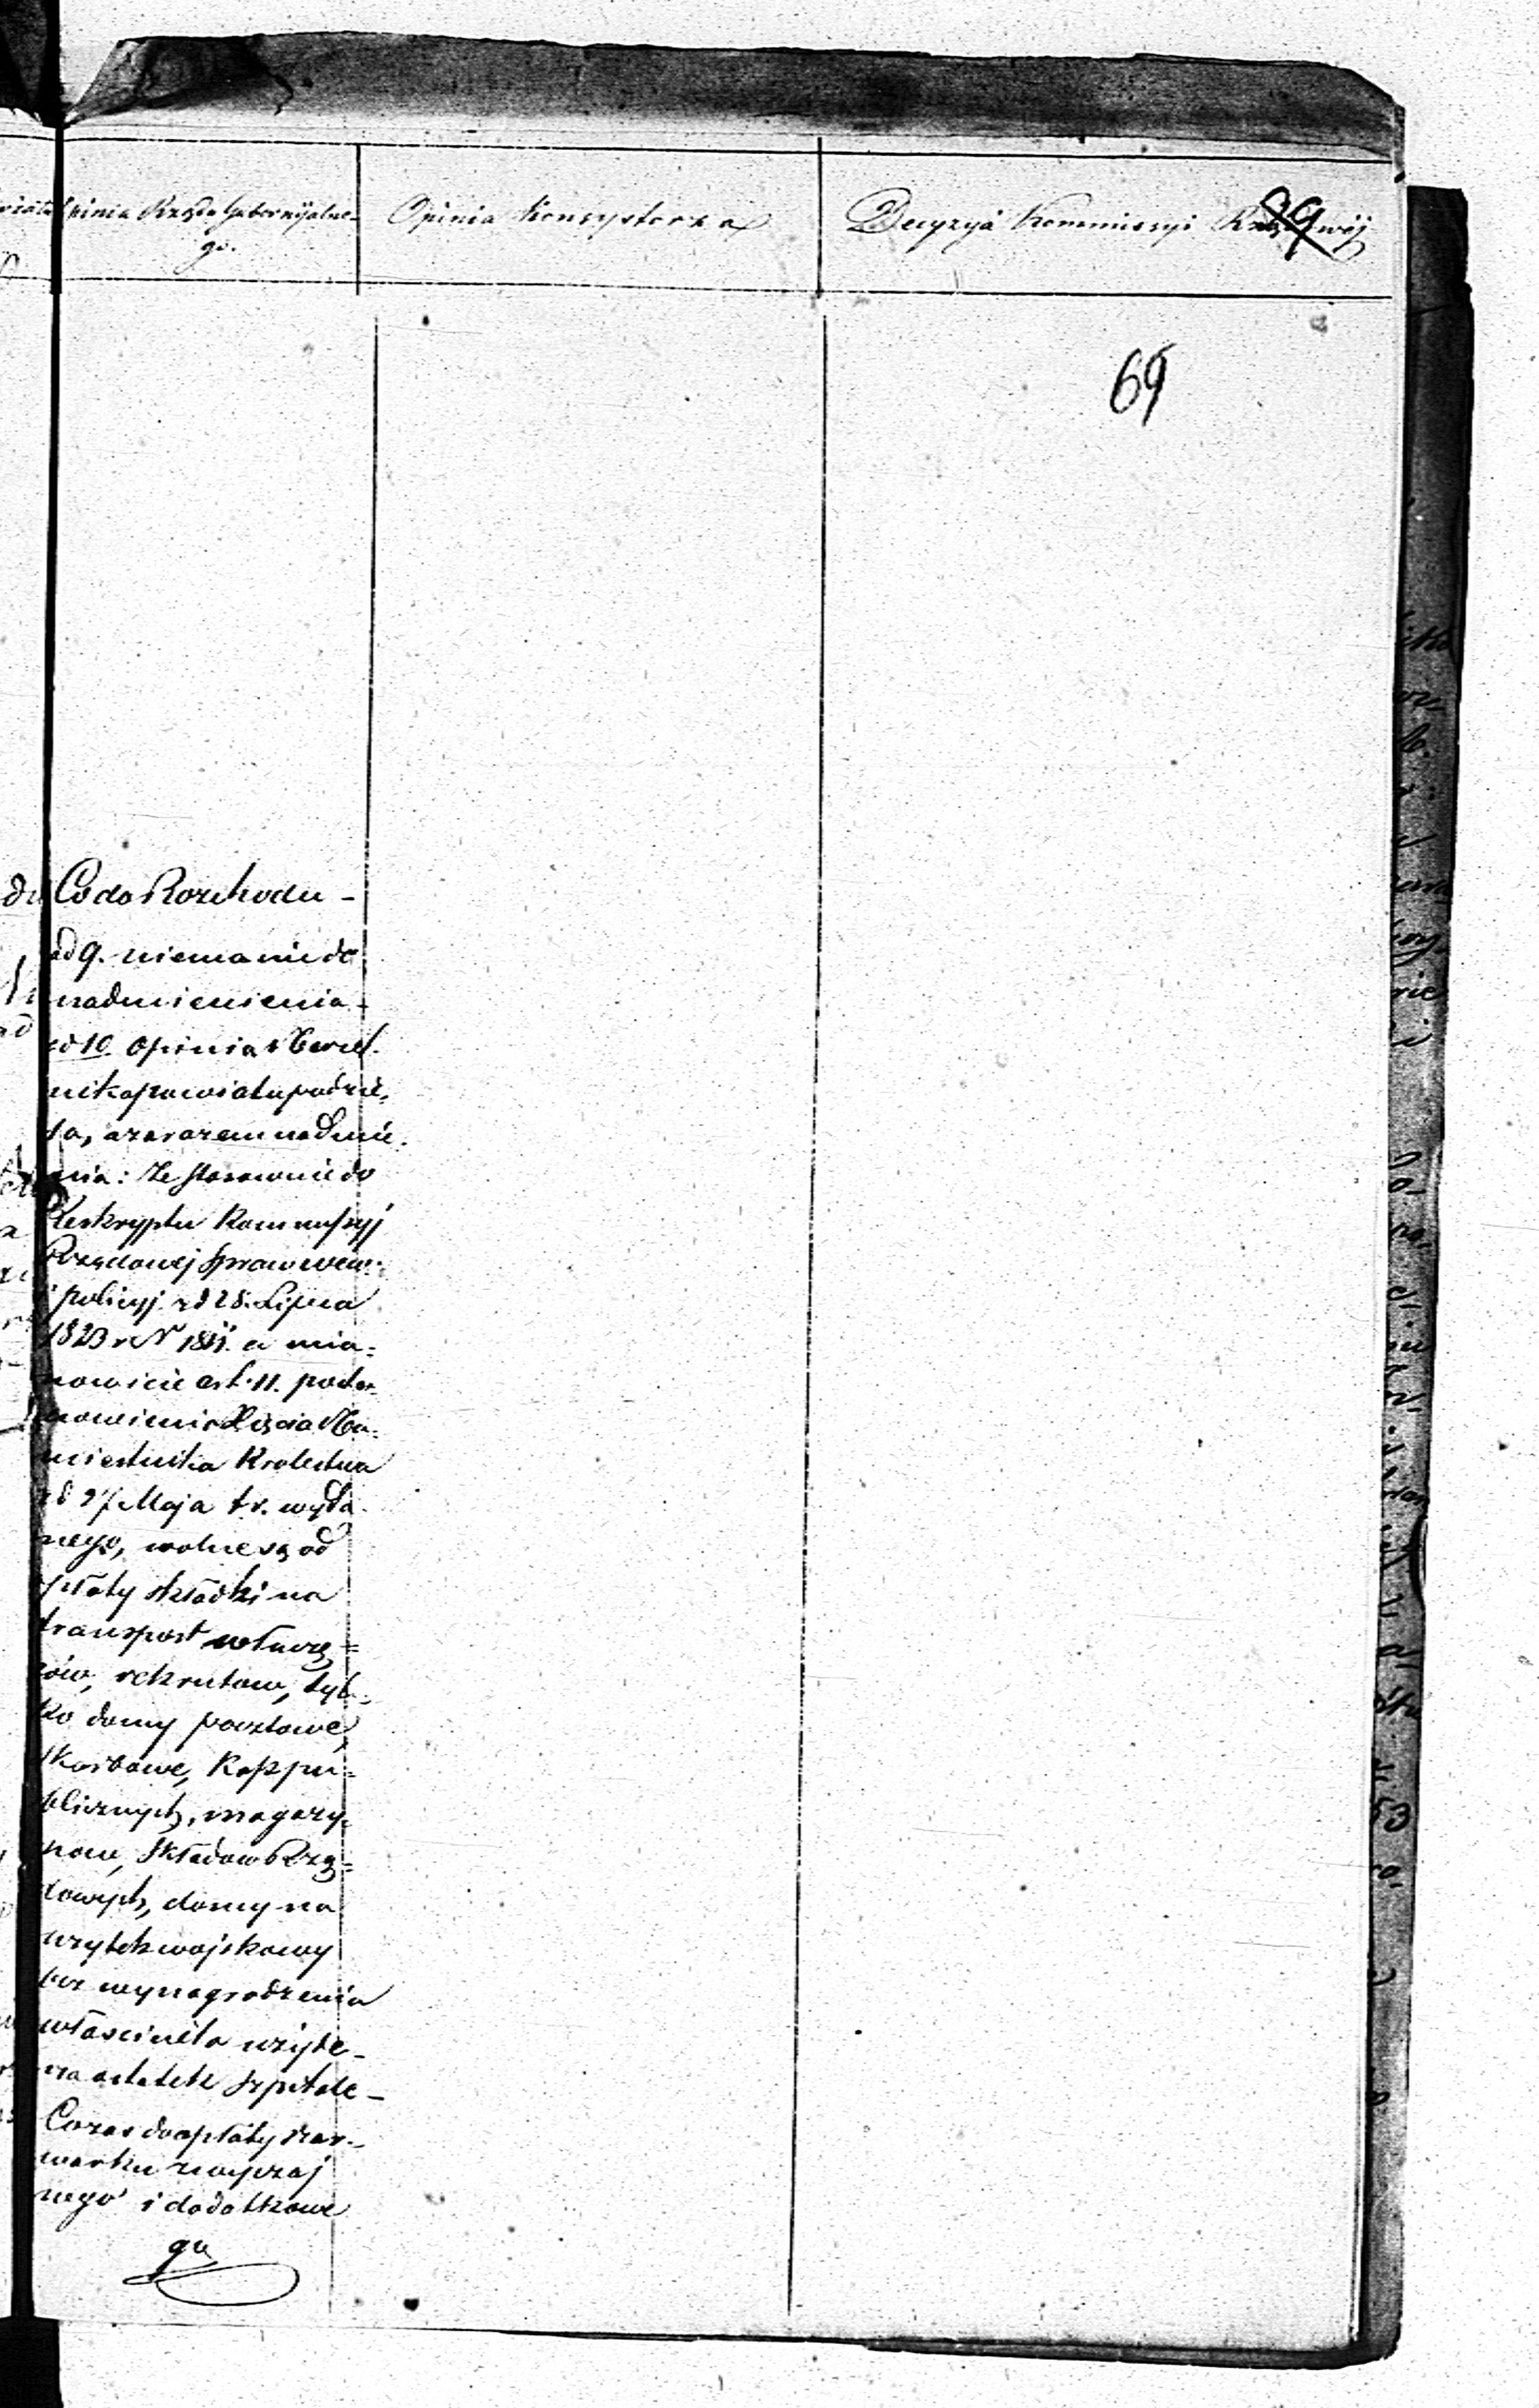 Opinia Rządu Gubernijalne-
go.
Opinia Konsystorza
Decyzyja Kommissyi Rządowéj
89
69
Co do Rozchodu -
ad 9. niema nic do
nadmienienia -
ad 10. Opinia Naczel.
nika powiatu podzie,
la, a zarazem nadmie.
nia: że stosownie do
Reskryptu Kommissyj
Rządowej Spraw wew:
i policyj z d 28. Lipca
1823 r N 1811. a mia=
nowicie art. 11. posta-
nowienia Xięcia Na-
miestnika Krolestwa
z d 27 Maja t r. wyda
nego, wolne są od
opłaty składki na
transport włóczę=
gów, rekrutow, tyl=
ko domy pocztowe,
skarbowe, Kass pu=
blicznych, magazy-
now, Składow Rzą=
dowych, domy na
użytek wojskowy
bez wynagrodzenia
właściciela użyte -
na ostatek szpitale -
Co zas do opłaty szar-
warku zwyczaj
nego i dodatkowe
go